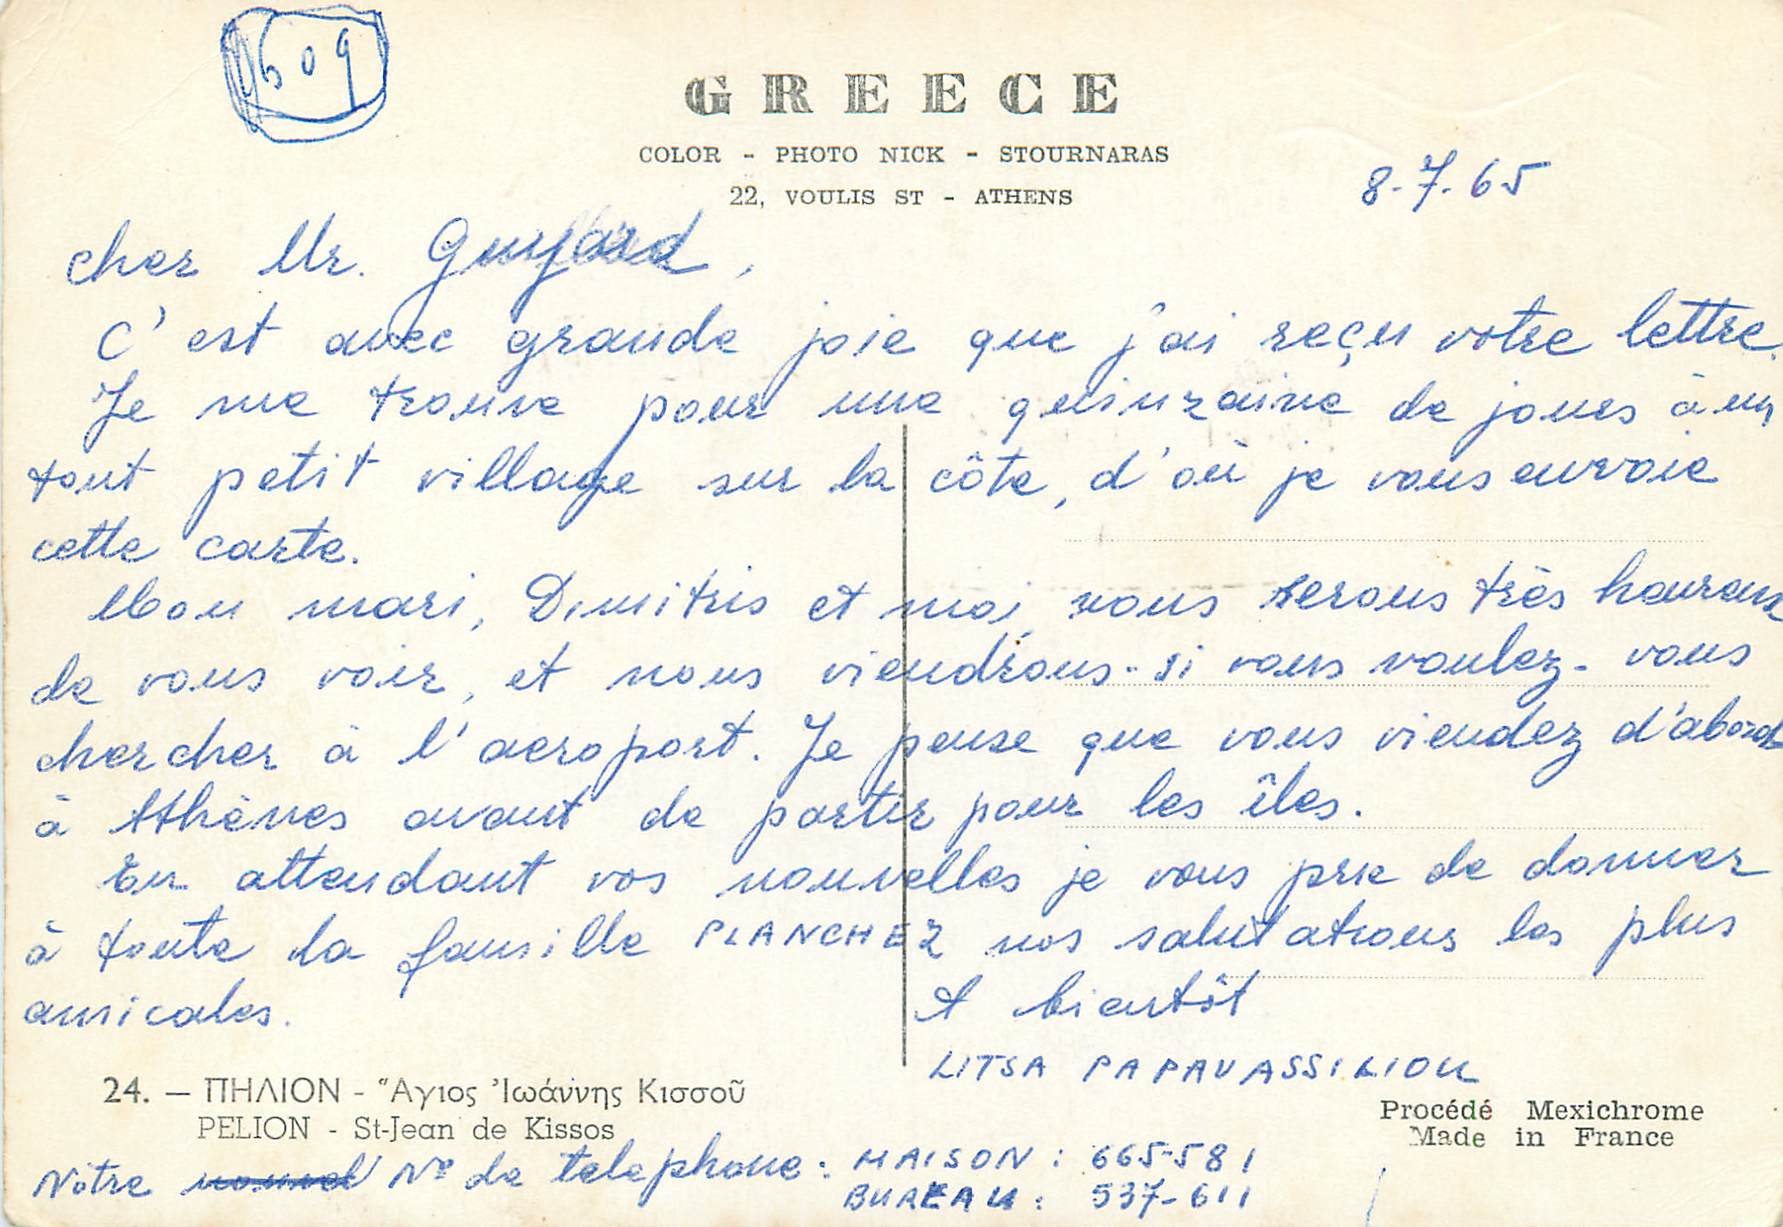 0609
GREECE
COLOR - PHOTO NICK - STOURNARAS
22, VOULIS ST - ATHENS
8-7.65
cher Mr. Guyard,
C'est avec grande joie que j'ai reçu votre lettre.
Je me trouve pour une quinzaine de jours à un
tout petit village sur la côte, d'où je vous envoie
cette carte.
Mon mari, Dimitris et moi, nous serons très heureux
de vous voir, et nous viendrons - si vous voulez - vous
chercher à l'aeroport. Je pense que vous viendez d'abord
à Athènes avant de partir pour les îles.
En attendant vos nouvelles je vous prie de donner
à toute la famille PLANCHEZ nos salutations les plus
amicales.
A bientôt
LITSA PAPAVASSILIOU
24. — ΠΗΛΙΟΝ - Ἅγιος Ἰωάννης Κισσοῦ
PELION - St-Jean de Kissos
Procédé Mexichrome
Made in France
Notre nouvel No de telephone: MAISON: 665-581
BUREAU: 537-611